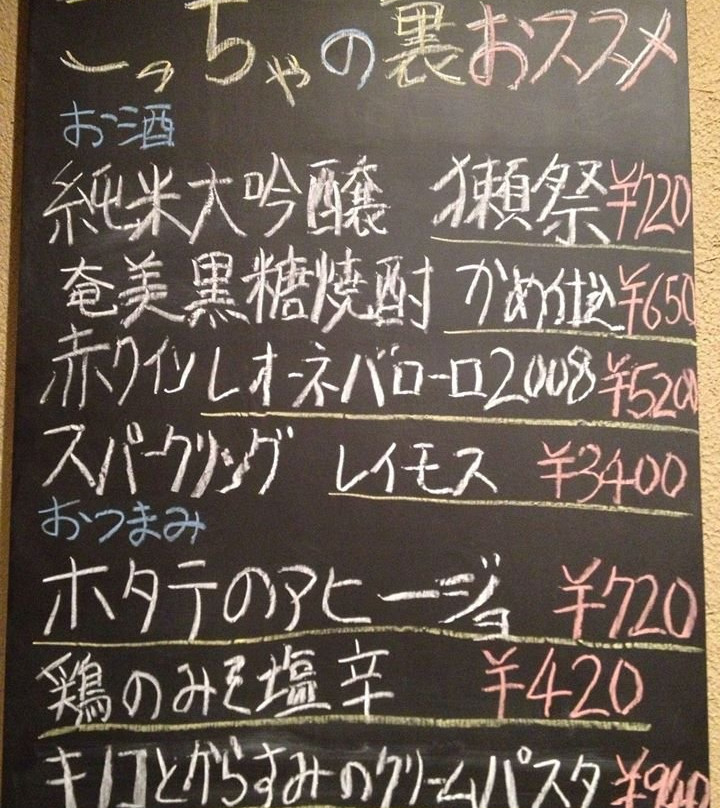 こっちゃの裏おススメ
お酒
純米大吟醸 獺祭 ¥720
奄美黒糖焼酎 かめ仕込 ¥650
赤ワイン レオーネバローロ2008 ¥5200
スパークリング レイモス ¥3400
おつまみ
ホタテのアヒージョ ¥720
鶏のみそ塩辛 ¥420
キノコとからすみのクリームパスタ ¥940